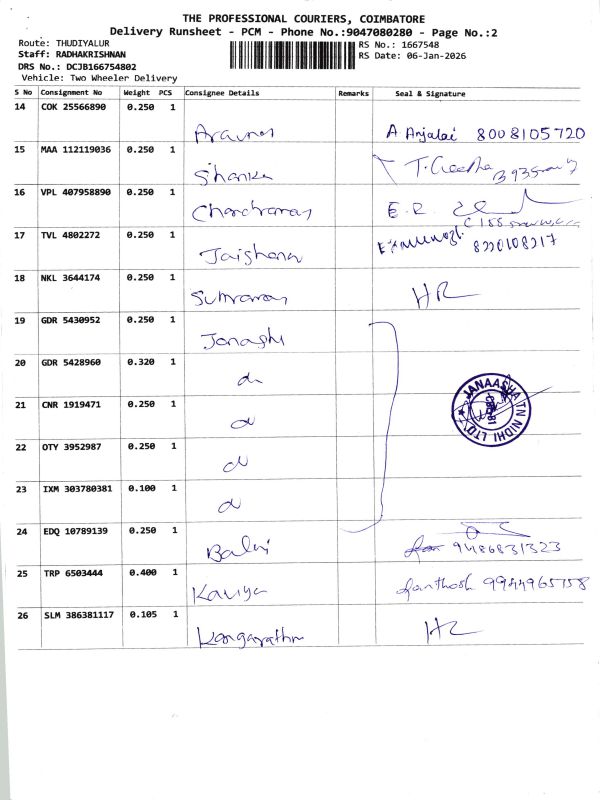 THE PROFESSIONAL COURIERS, COIMBATORE
Delivery Runsheet - PCM - Phone No.:9047080280 - Page No.:2
Route: THUDIYALUR
RS No.: 1667548
Staff: RADHAKRISHNAN
RS Date: 06-Jan-2026
DRS No.: DCJB166754802
Vehicle: Two Wheeler Delivery
S No Consignment No Weight PCS Consignee Details Remarks Seal & Signature
14 COK 25566890 0.250 1
A. Anjalai 8008105720
15 MAA 112119036 0.250 1
T. Geetha
16 VPL 407958890 0.250 1
E.R.
17 TVL 4802272 0.250 1
8220108217
18 NKL 3644174 0.250 1
HR
19 GDR 5430952 0.250 1
20 GDR 5428960 0.320 1
JANAASHA TN NIDHI LTD.
21 CNR 1919471 0.250 1
22 OTY 3952987 0.250 1
23 IXM 303780381 0.100 1
24 EDQ 10789139 0.250 1
9486831323
25 TRP 6503444 0.400 1
Kaviya Santhosh 9944965158
26 SLM 386381117 0.105 1
HR